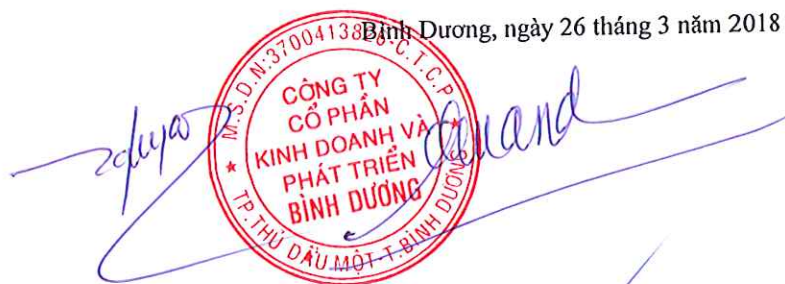 Bình Dương, ngày 26 tháng 3 năm 2018
M.S.D.N:3700413826-C.T.C.P
CÔNG TY
CỔ PHẦN
KINH DOANH VÀ
PHÁT TRIỂN
BÌNH DƯƠNG
TP.THỦ DẦU MỘT-T.BÌNH DƯƠNG